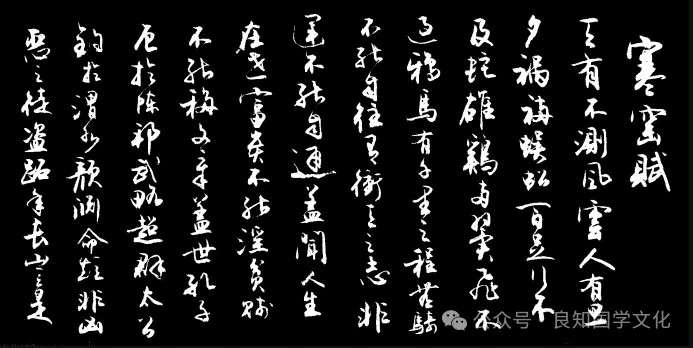 寒窑賦
天有不測風雲人有旦
夕禍福蜈蚣百足行不
及蛇雄鷄兩翼飛不
過鴉馬有千里之程無騎
不能自往有衝天之志非
運不能自通蓋聞人生
在世富貴不能淫貧賤
不能移文章蓋世孔子
厄於陳邦武略超群太公
釣於渭水顏淵命短非凶
惡之徒盜跖年長豈是
公众号 · 良知国学文化